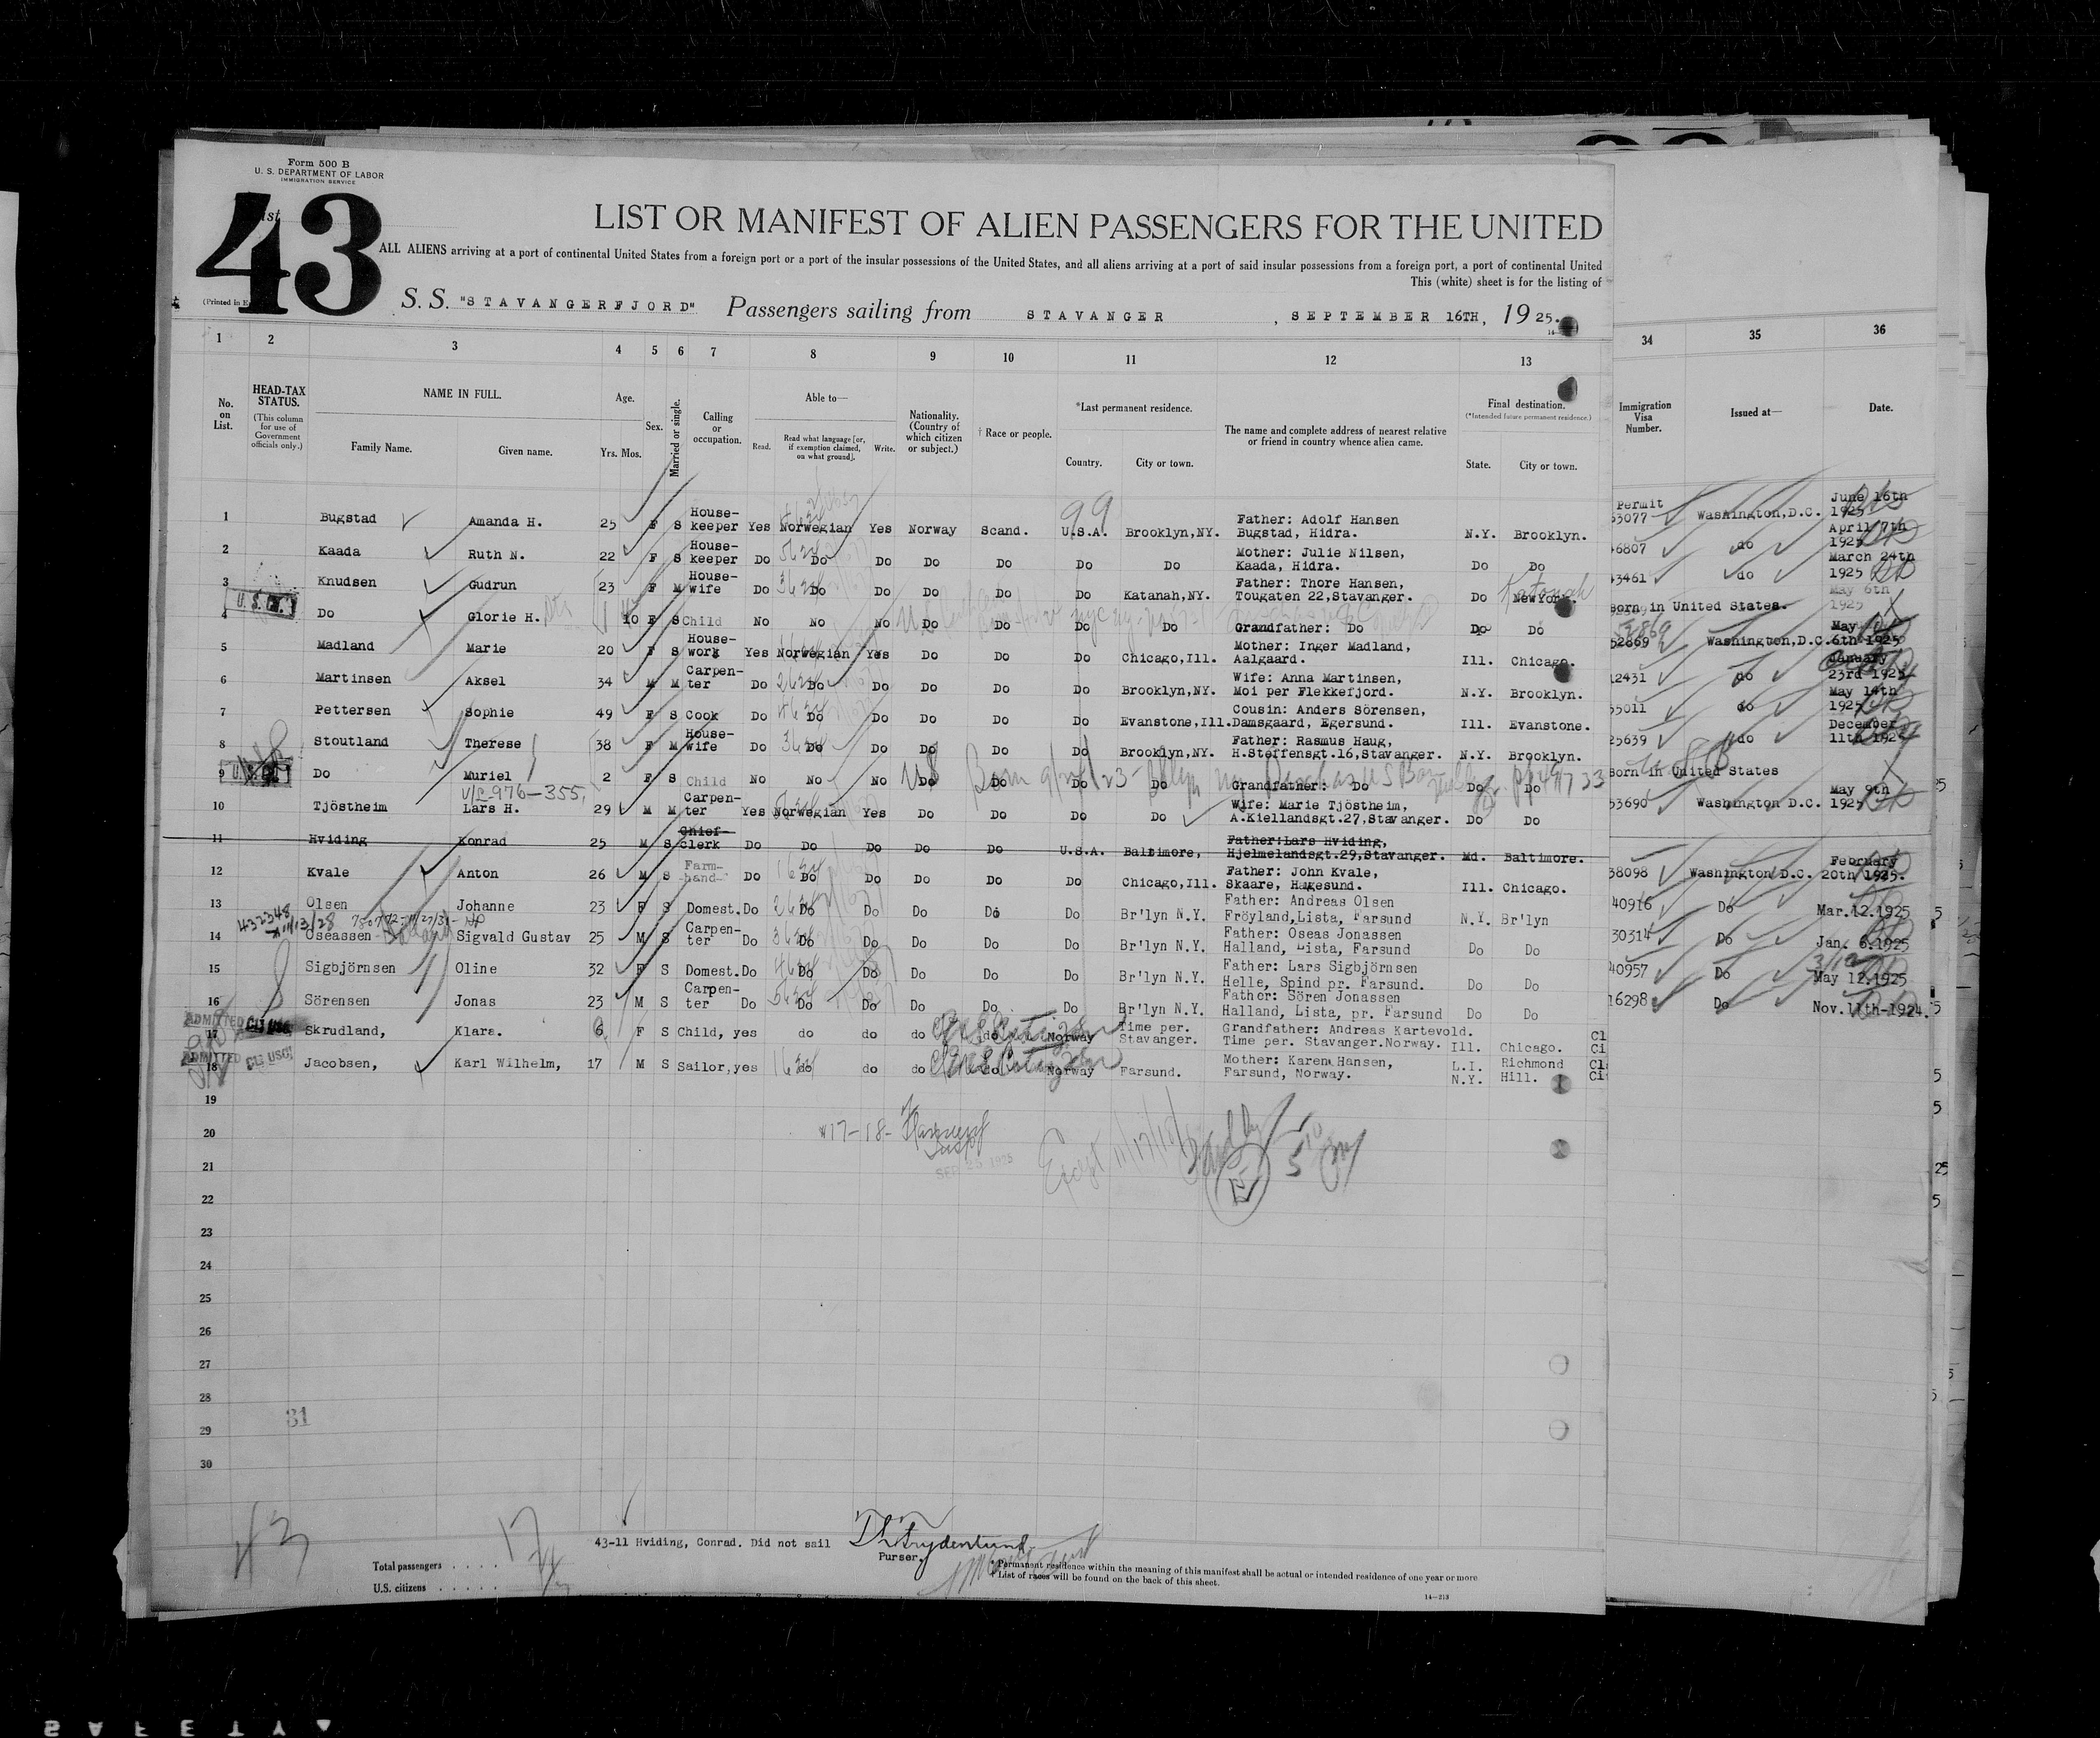 Form 500 B
U. S. DEPARTMENT OF LABOR
IMMIGRATION SERVICE
43
LIST OR MANIFEST OF ALIEN PASSENGERS FOR THE UNITED
ALL ALIENS arriving at a port of continental United States from a foreign port or a port of the insular possessions of the United States, and all aliens arriving at a port of said insular possessions from a foreign port, a port of continental United
This (white) sheet is for the listing of
S. S. "STAVANGERFJORD" Passengers sailing from STAVANGER , SEPTEMBER 16TH, 19 25.
1 2 3 4 5 6 7 8 9 10 11 12 13 34 35 36
No. on List. HEAD-TAX STATUS. (This column for use of Government officials only.) NAME IN FULL. Family Name. Given name. Age. Yrs. Mos. Sex. Married or single. Calling or occupation. Able to— Read. Read what language [or, if exemption claimed, on what ground]. Write. Nationality. (Country of which citizen or subject.) † Race or people. *Last permanent residence. Country. City or town. The name and complete address of nearest relative or friend in country whence alien came. Final destination. (*Intended future permanent residence.) State. City or town. Immigration Visa Number. Issued at— Date.
99
1 Bugstad Amanda H. 25 F S House-keeper Yes Norwegian Yes Norway Scand. U.S.A. Brooklyn,NY. Father: Adolf Hansen Bugstad, Hidra. N.Y. Brooklyn. Permit 63077 Washington,D.C. June 16th 1925
2 Kaada Ruth N. 22 F S House-keeper Do Do Do Do Do Do Do Mother: Julie Nilsen, Kaada, Hidra. Do Do 46807 do April 7th 1925
3 Knudsen Gudrun 23 F M House-wife Do Do Do Do Do Do Katanah,NY. Father: Thore Hansen, Tougaten 22,Stavanger. Do NewYork. 43461 do March 24th 1925
4 Do Glorie H. 10 F S Child No No No Do Do Do Do Grandfather: Do Do Do Born in United States. May 6th 1925
5 Madland Marie 20 F S House-work Yes Norwegian Yes Do Do Do Chicago,Ill. Mother: Inger Madland, Aalgaard. Ill. Chicago. 52869 Washington,D.C. May 6th 1925
6 Martinsen Aksel 34 M M Carpen-ter Do Do Do Do Do Do Brooklyn,NY. Wife: Anna Martinsen, Moi per Flekkefjord. N.Y. Brooklyn. 12431 do January 23rd 1925
7 Pettersen Sophie 49 F S Cook Do Do Do Do Do Do Evanstone,Ill. Cousin: Anders Sörensen, Damsgaard, Egersund. Ill. Evanstone. 55011 do May 14th 1925
8 Stoutland Therese 38 F M House-wife Do Do Do Do Do Do Brooklyn,NY. Father: Rasmus Haug, H.Steffensgt.16,Stavanger. N.Y. Brooklyn. 25639 do December 11th 1924
9 Do Muriel 2 F S Child No No No Do Do Do Do Grandfather: Do Do Do Born in United States
10 Tjöstheim Lars H. 29 M M Carpen-ter Yes Norwegian Yes Do Do Do Do Wife: Marie Tjöstheim, A.Kiellandsgt.27,Stavanger. Do Do 53690 Washington D.C. May 9th 1925
11 Hviding Konrad 25 M S Chief-clerk Do Do Do Do Do U.S.A. Baltimore, Father:Lars Hviding, Hjelmelandsgt.29,Stavanger. Md. Baltimore.
12 Kvale Anton 26 M S Farm-hand Do Do Do Do Do Do Chicago,Ill. Father: John Kvale, Skaare, Haugesund. Ill. Chicago. 38098 Washington D.C. February 20th 1925.
13 Olsen Johanne 23 F S Domest. Do Do Do Do Do Do Br'lyn N.Y. Father: Andreas Olsen Fröyland,Lista, Farsund N.Y. Br'lyn 40916 Do Mar.12.1925
14 Oseassen Sigvald Gustav 25 M S Carpen-ter Do Do Do Do Do Do Br'lyn N.Y. Father: Oseas Jonassen Halland, Lista, Farsund Do Do 30314 Do Jan. 6.1925
15 Sigbjörnsen Oline 32 F S Domest. Do Do Do Do Do Do Br'lyn N.Y. Father: Lars Sigbjörnsen Helle, Spind pr. Farsund. Do Do 40957 Do May 12.1925
16 Sörensen Jonas 23 M S Carpen-ter Do Do Do Do Do Do Br'lyn N.Y. Father: Sören Jonassen Halland, Lista, pr. Farsund Do Do 16298 Do Nov.11th-1924.
ADMITTED
17 Skrudland, Klara. 6 F S Child, yes do do do do Norway Time per. Stavanger. Grandfather: Andreas Kartevold. Time per. Stavanger.Norway. Ill. Chicago.
ADMITTED
18 Jacobsen, Karl Wilhelm, 17 M S Sailor, yes do do do do Norway Farsund. Mother: Karen Hansen, Farsund, Norway. L.I. N.Y. Richmond Hill.
19
20
21
22
23
24
25
26
27
28
29
30
17-18-
SEP 25 1925
31
43
17
43-11 Hviding, Conrad. Did not sail
Purser.
Total passengers . . . . .
U.S. citizens . . . . . .
* Permanent residence within the meaning of this manifest shall be actual or intended residence of one year or more.
† List of races will be found on the back of this sheet.
14—213
SAFETY